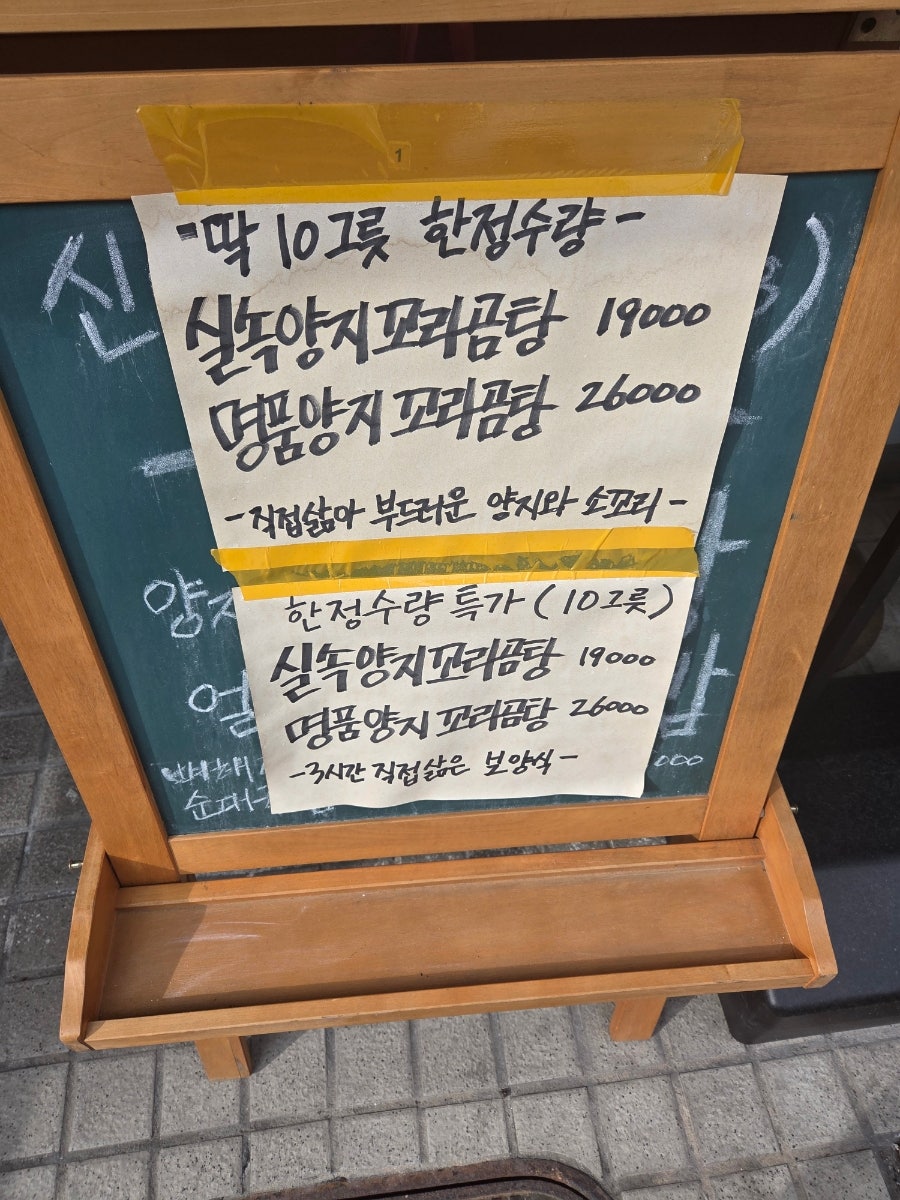 1
-딱 10그릇 한정수량-
실속양지꼬리곰탕 19000
명품양지꼬리곰탕 26000
-직접삶아 부드러운 양지와 소꼬리-
한정수량 특가 (10그릇)
실속양지꼬리곰탕 19000
명품양지꼬리곰탕 26000
-3시간 직접삶은 보양식-
신
)
양지
얼
000
순대